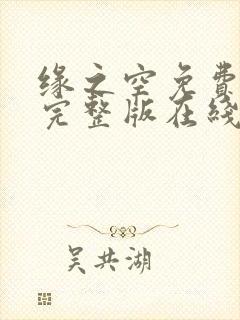 缘之空免费
完整版在线
吴共湖